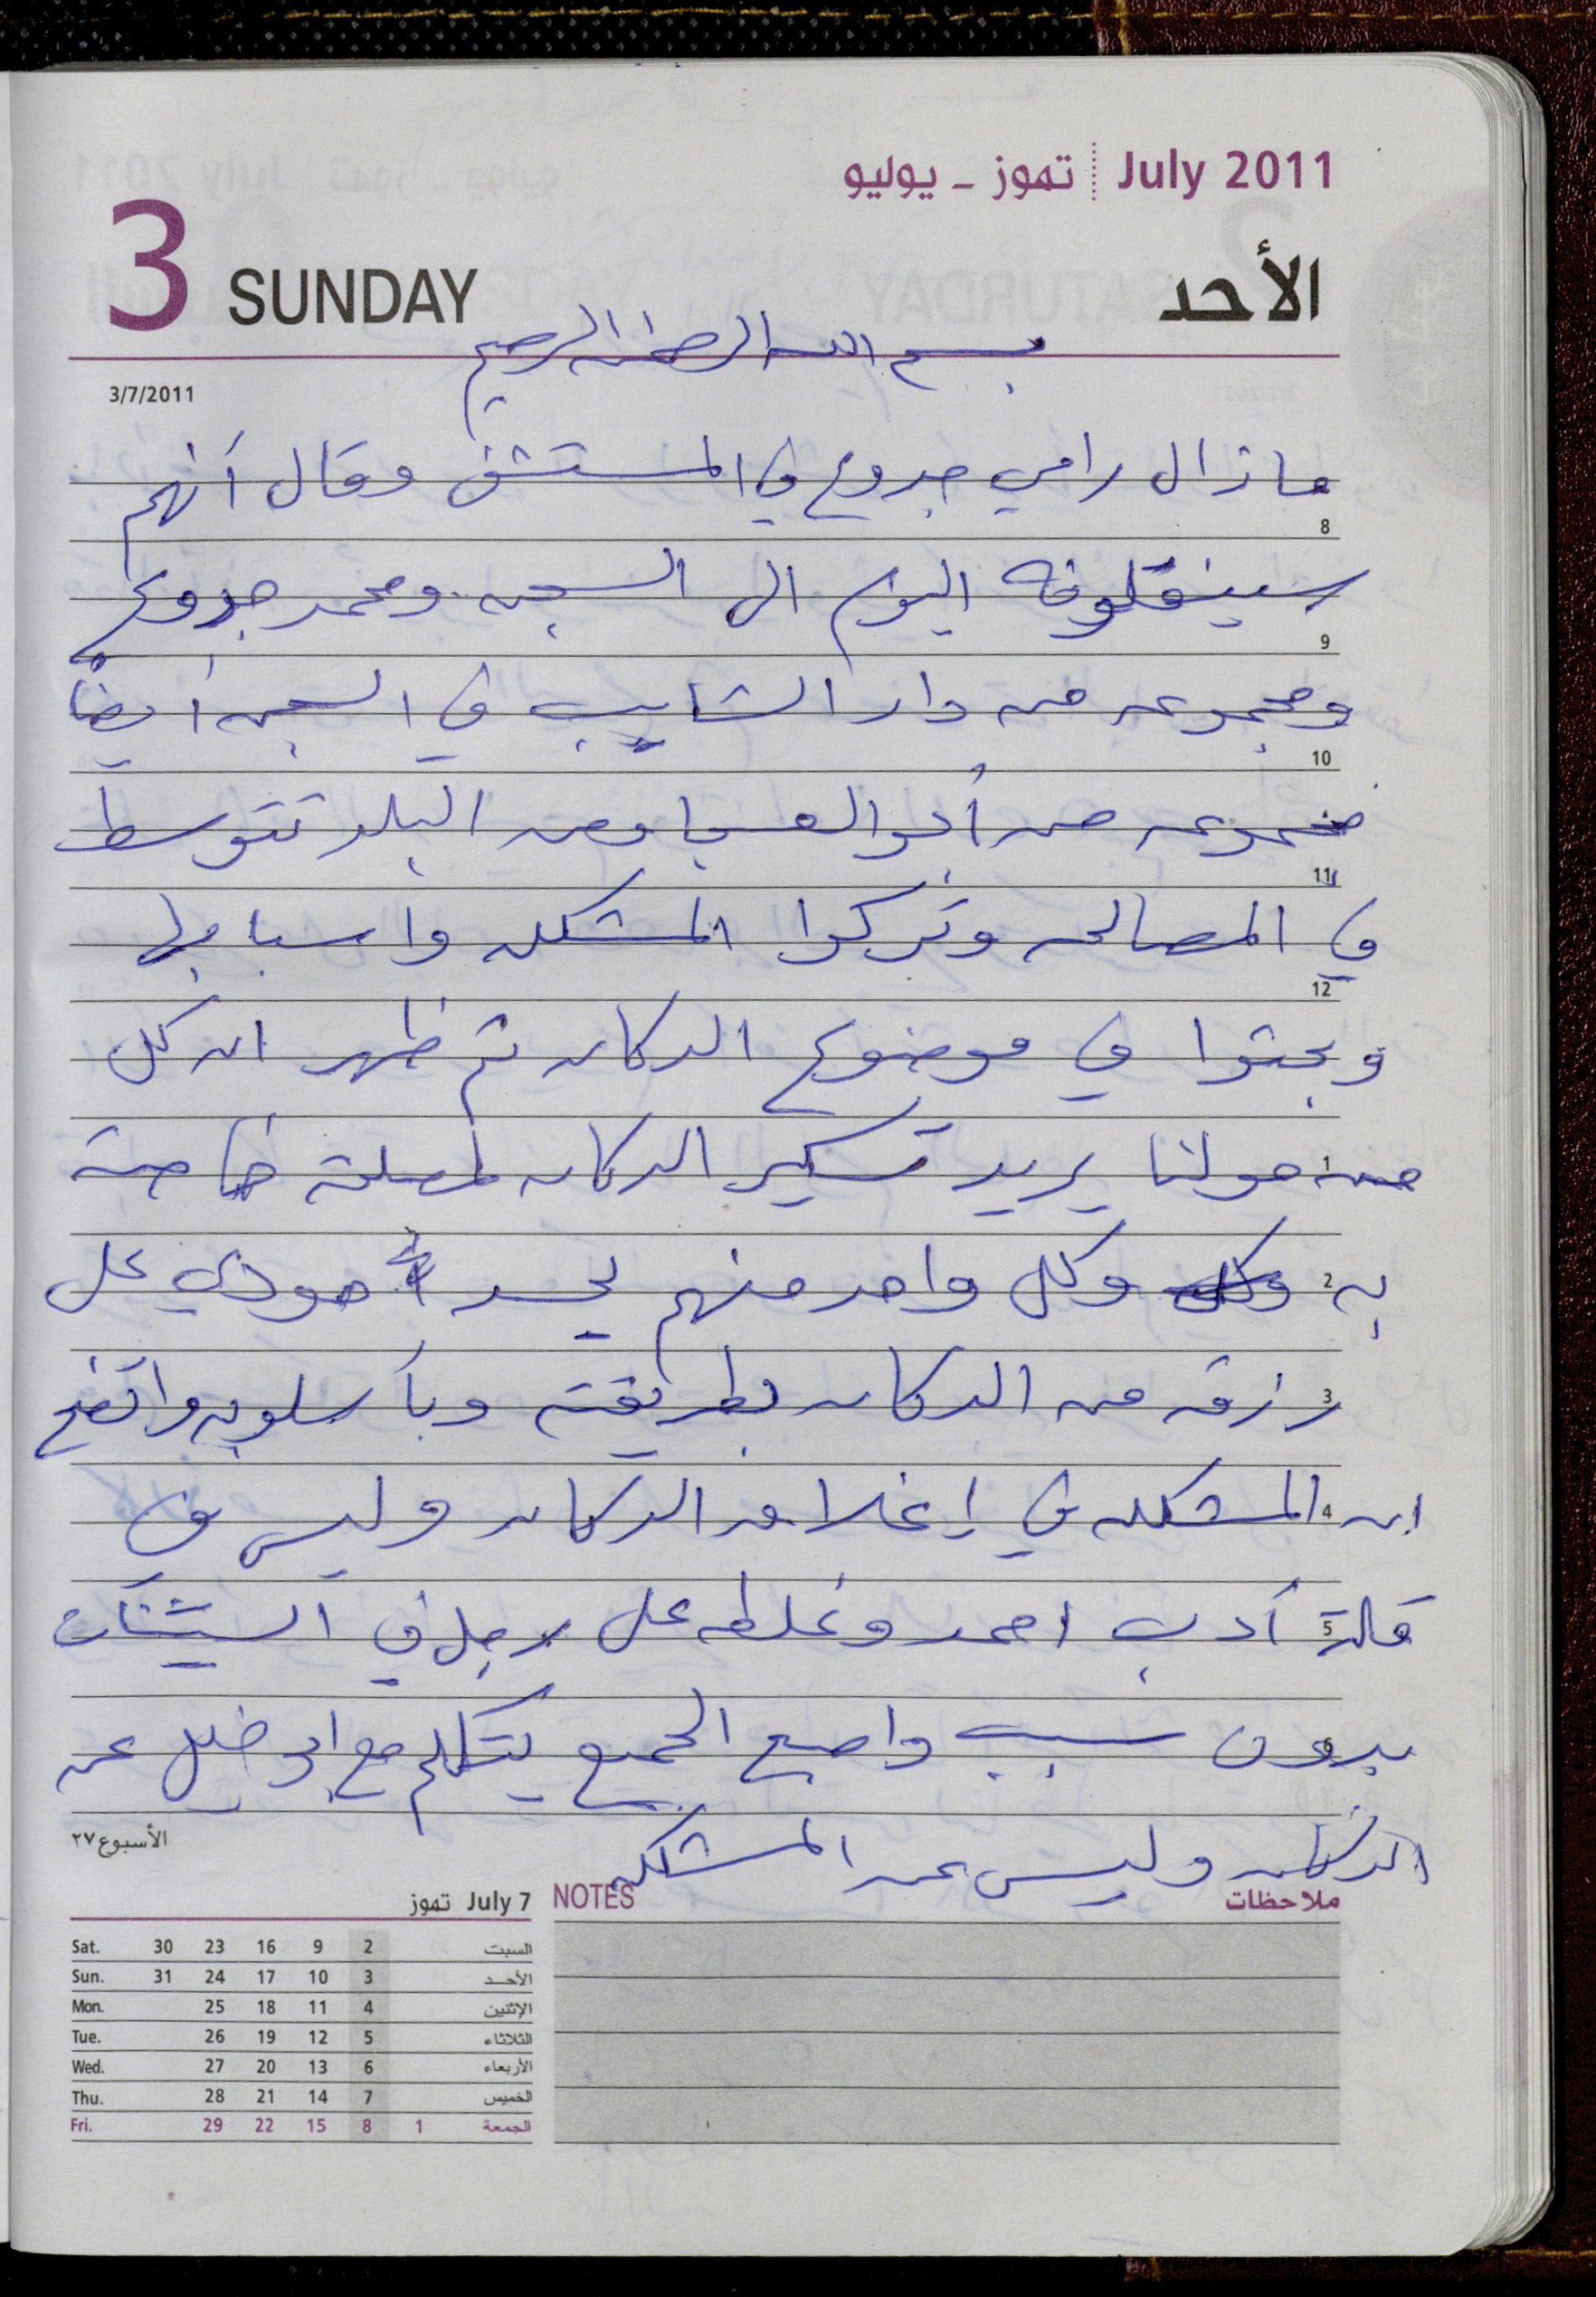 July 2011 تموز - يوليو
3 SUNDAY الأحد
بسم الله الرحمن الرحيم
3/7/2011
ما زال رامي جدوع في المستشفى وقال أنهم
8
سينقلونه اليوم الى السجن ومحمد جدوع
9
ومجموعه من دار الشايب في السجن أيضاً
10
مجموعه من أبو العسبا ومن البلد تتوسط
11
في المصالحه وتركوا المشكله واسبابها
12
وبحثوا في موضوع الدكان ثم ظهر ان كل
1
من حولنا يريد تسكير الدكان لمصلحة خاصة
2
به وكل وكل واحد منهم يحسد حودي على
3
رزقه من الدكان بطريقته وبأسلوبه واتضح
4
ان المشكله في إغلاق الدكان وليس في
5
قلة أدب احمد وغلطه على رجل في الستينات
6
بدون سبب واصبح الجميع يتكلم مع ابو خليل عن
الدكان وليس عن المشكله
الأسبوع ٢٧
July 7 تموز
NOTES ملاحظات
Sat. 30 23 16 9 2 السبت
Sun. 31 24 17 10 3 الأحد
Mon. 25 18 11 4 الإثنين
Tue. 26 19 12 5 الثلاثاء
Wed. 27 20 13 6 الأربعاء
Thu. 28 21 14 7 الخميس
Fri. 29 22 15 8 1 الجمعة